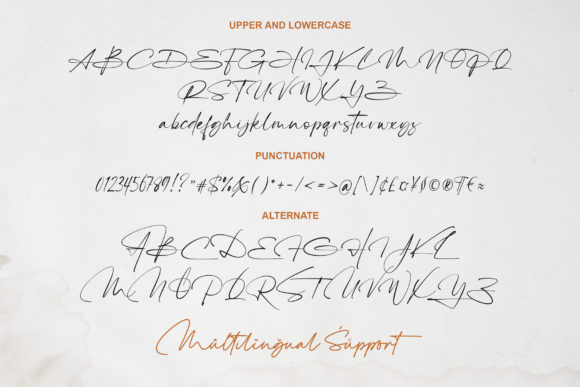 UPPER AND LOWERCASE
ABCDEFGHIJKLMNOPQ
RSTUVWXYZ
abcdefghijklmnopqrstuvwxyz
PUNCTUATION
0123456789!?"#$%&()*+-/<=>@[\]¢£¤¥§©®¶€≈
ALTERNATE
ABCDEFGHIJKL
MNOPQRSTUVWXYZ
Múltilinğual Śúppört